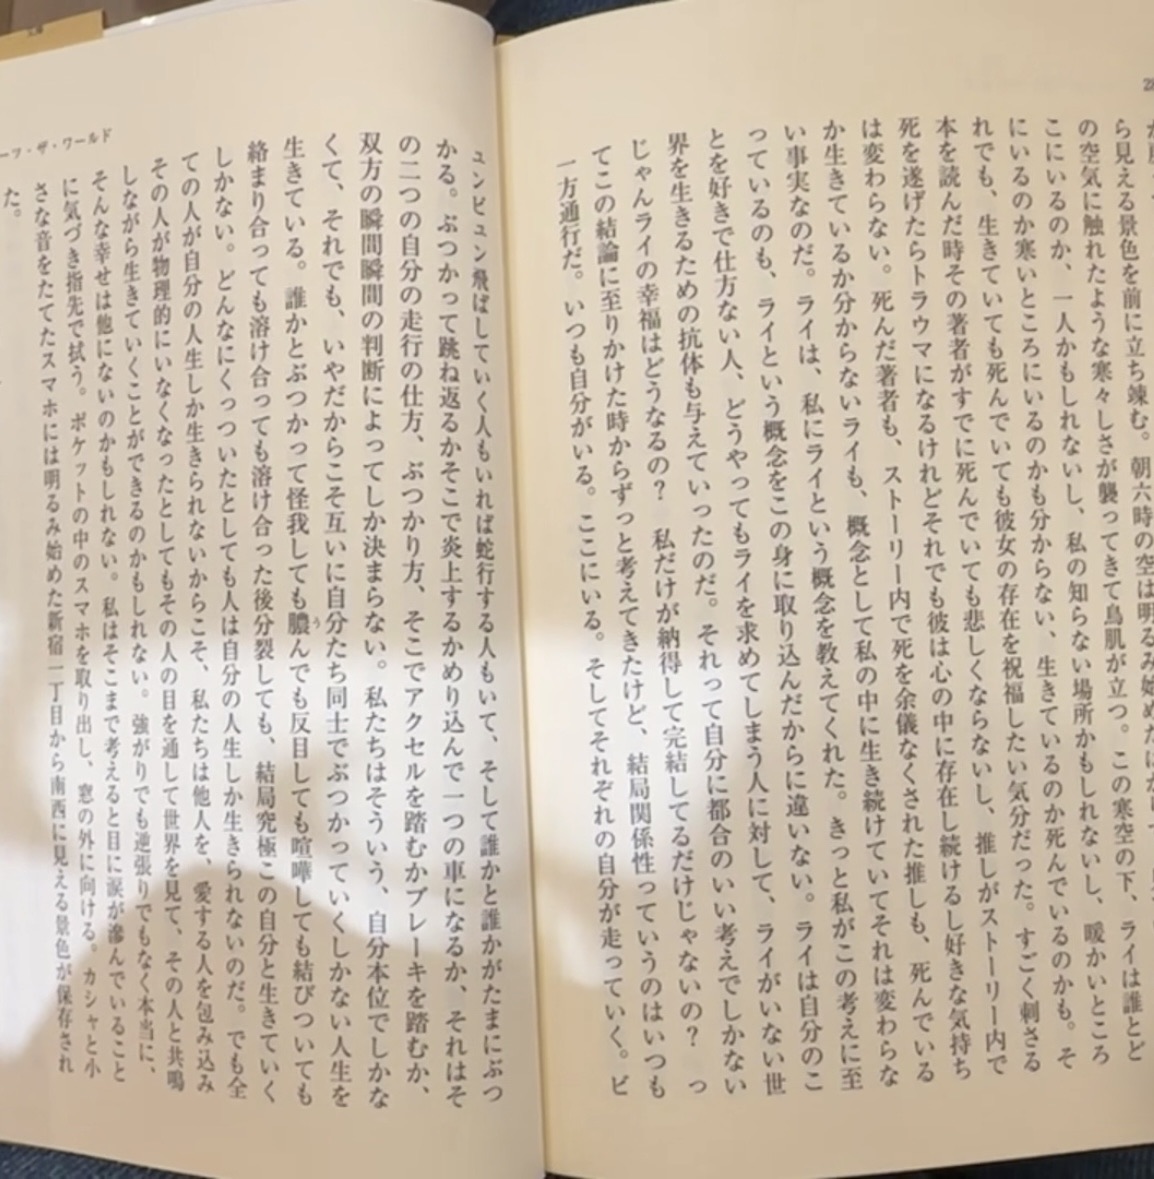 ら見える景色を前に立ち竦む。朝六時の空は明るみ始めたばかり
の空気に触れたような寒々しさが襲ってきて鳥肌が立つ。この寒空の下、ライは誰とど
こにいるのか、一人かもしれないし、私の知らない場所かもしれないし、暖かいところ
にいるのか寒いところにいるのかも分からない、生きているのか死んでいるのかも。そ
れでも、生きていても死んでいても彼女の存在を祝福したい気分だった。すごく刺さる
本を読んだ時その著者がすでに死んでいても悲しくならないし、推しがストーリー内で
死を遂げたらトラウマになるけれどそれでも彼は心の中に存在し続けるし好きな気持ち
は変わらない。死んだ著者も、ストーリー内で死を余儀なくされた推しも、死んでいる
か生きているか分からないライも、概念として私の中に生き続けていてそれは変わらな
い事実なのだ。ライは、私にライという概念を教えてくれた。きっと私がこの考えに至
っているのも、ライという概念をこの身に取り込んだからに違いない。ライは自分のこ
とを好きで仕方ない人、どうやってもライを求めてしまう人に対して、ライがいない世
界を生きるための抗体も与えていったのだ。それって自分に都合のいい考えでしかない
じゃんライの幸福はどうなるの? 私だけが納得して完結してるだけじゃないの? っ
てこの結論に至りかけた時からずっと考えてきたけど、結局関係性っていうのはいつも
一方通行だ。いつも自分がいる。ここにいる。そしてそれぞれの自分が走っていく。ビ
ーフ・ザ・ワールド
ュンビュン飛ばしていく人もいれば蛇行する人もいて、そして誰かと誰かがたまにぶつ
かる。ぶつかって跳ね返るかそこで炎上するかめり込んで一つの車になるか、それはそ
の二つの自分の走行の仕方、ぶつかり方、そこでアクセルを踏むかブレーキを踏むか、
双方の瞬間瞬間の判断によってしか決まらない。私たちはそういう、自分本位でしかな
くて、それでも、いやだからこそ互いに自分たち同士でぶつかっていくしかない人生を
生きている。誰かとぶつかって怪我しても膿んでも反目しても喧嘩しても結びついても
絡まり合っても溶け合っても溶け合った後分裂しても、結局究極この自分と生きていく
しかない。どんなにくっついたとしても人は自分の人生しか生きられないのだ。でも全
ての人が自分の人生しか生きられないからこそ、私たちは他人を、愛する人を包み込み
その人が物理的にいなくなったとしてもその人の目を通して世界を見て、その人と共鳴
しながら生きていくことができるのかもしれない。強がりでも逆張りでもなく本当に、
そんな幸せは他にないのかもしれない。私はそこまで考えると目に涙が滲んでいること
に気づき指先で拭う。ポケットの中のスマホを取り出し、窓の外に向ける。カシャと小
さな音をたてたスマホには明るみ始めた新宿一丁目から南西に見える景色が保存され
た。